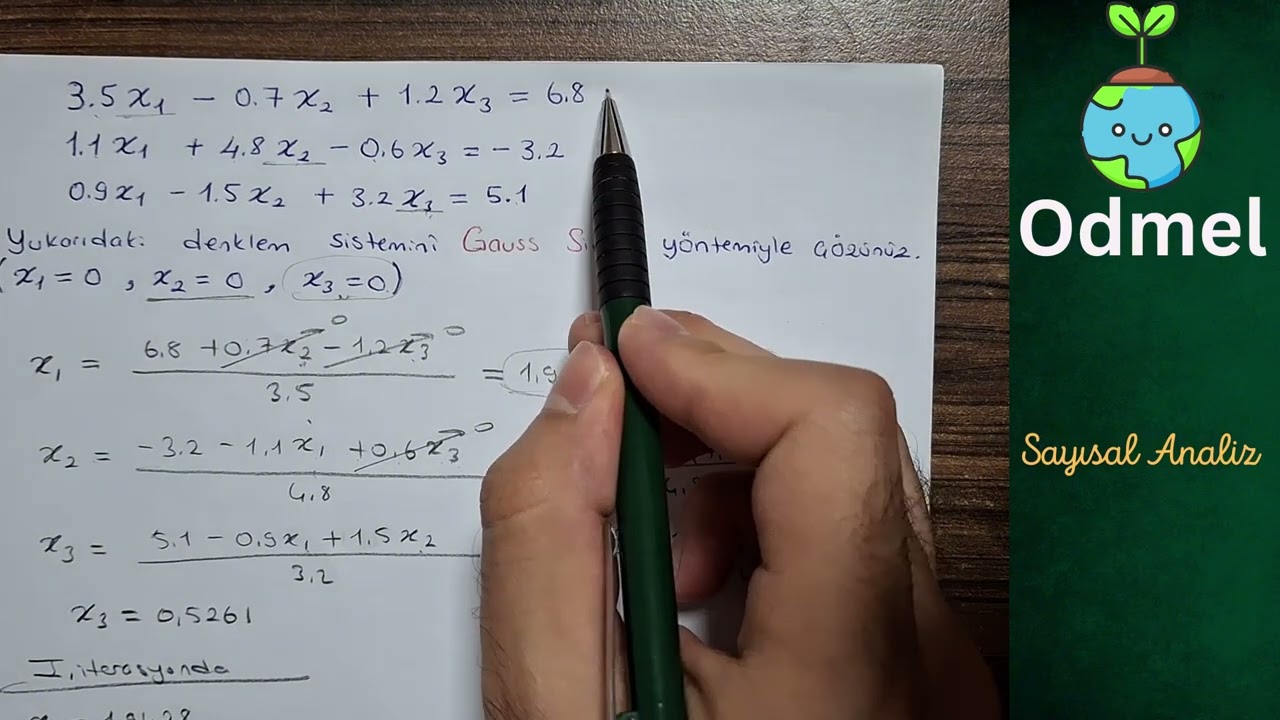 3.5x₁ - 0.7x₂ + 1.2x₃ = 6.8
1.1x₁ + 4.8x₂ - 0.6x₃ = -3.2
0.9x₁ - 1.5x₂ + 3.2x₃ = 5.1
Yukarıdaki denklem sistemini Gauss yöntemiyle çözünüz.
(x₁ = 0 , x₂ = 0 , x₃ = 0)
0 0
x₁ = 6.8 + 0.7x₂ - 1.2x₃ / 3.5 =
0
x₂ = -3.2 - 1,1x₁ + 0,6x₃ / 4,8
x₃ = 5.1 - 0.9x₁ + 1.5x₂ / 3,2
x₃ = 0,5261
I, iterasyonda
Odmel
Sayısal Analiz